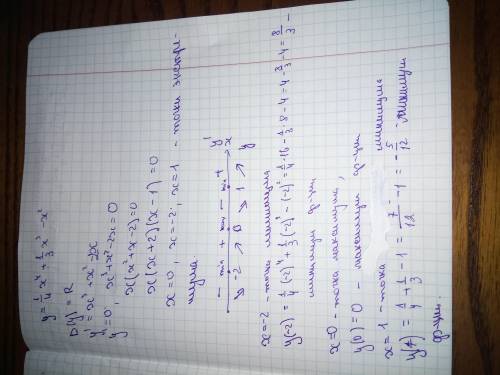 y = 1/4 x⁴ + 1/3 x³ - x²
D(y) = R
y' = x³ + x² - 2x
y' = 0, x³ + x² - 2x = 0
x(x² + x - 2) = 0
x(x + 2)(x - 1) = 0
x = 0, x = -2, x = 1 - точки экстре-
мума
- min + max - min + y'
-2 0 1 x
↘ ↗ ↘ ↗ y
x = -2 - точка минимума
y(-2) = 1/4 (-2)⁴ + 1/3 (-2)³ - (-2)² = 1/4 · 16 - 1/3 · 8 - 4 = 4 - 8/3 - 4 = 8/3 -
минимум ф-ции
x = 0 - точка максимума,
y(0) = 0 - максимум ф-ции
x = 1 - точка минимума
y(1) = 1/4 + 1/3 - 1 = 7/12 - 1 = -5/12 - минимум
ф-ции